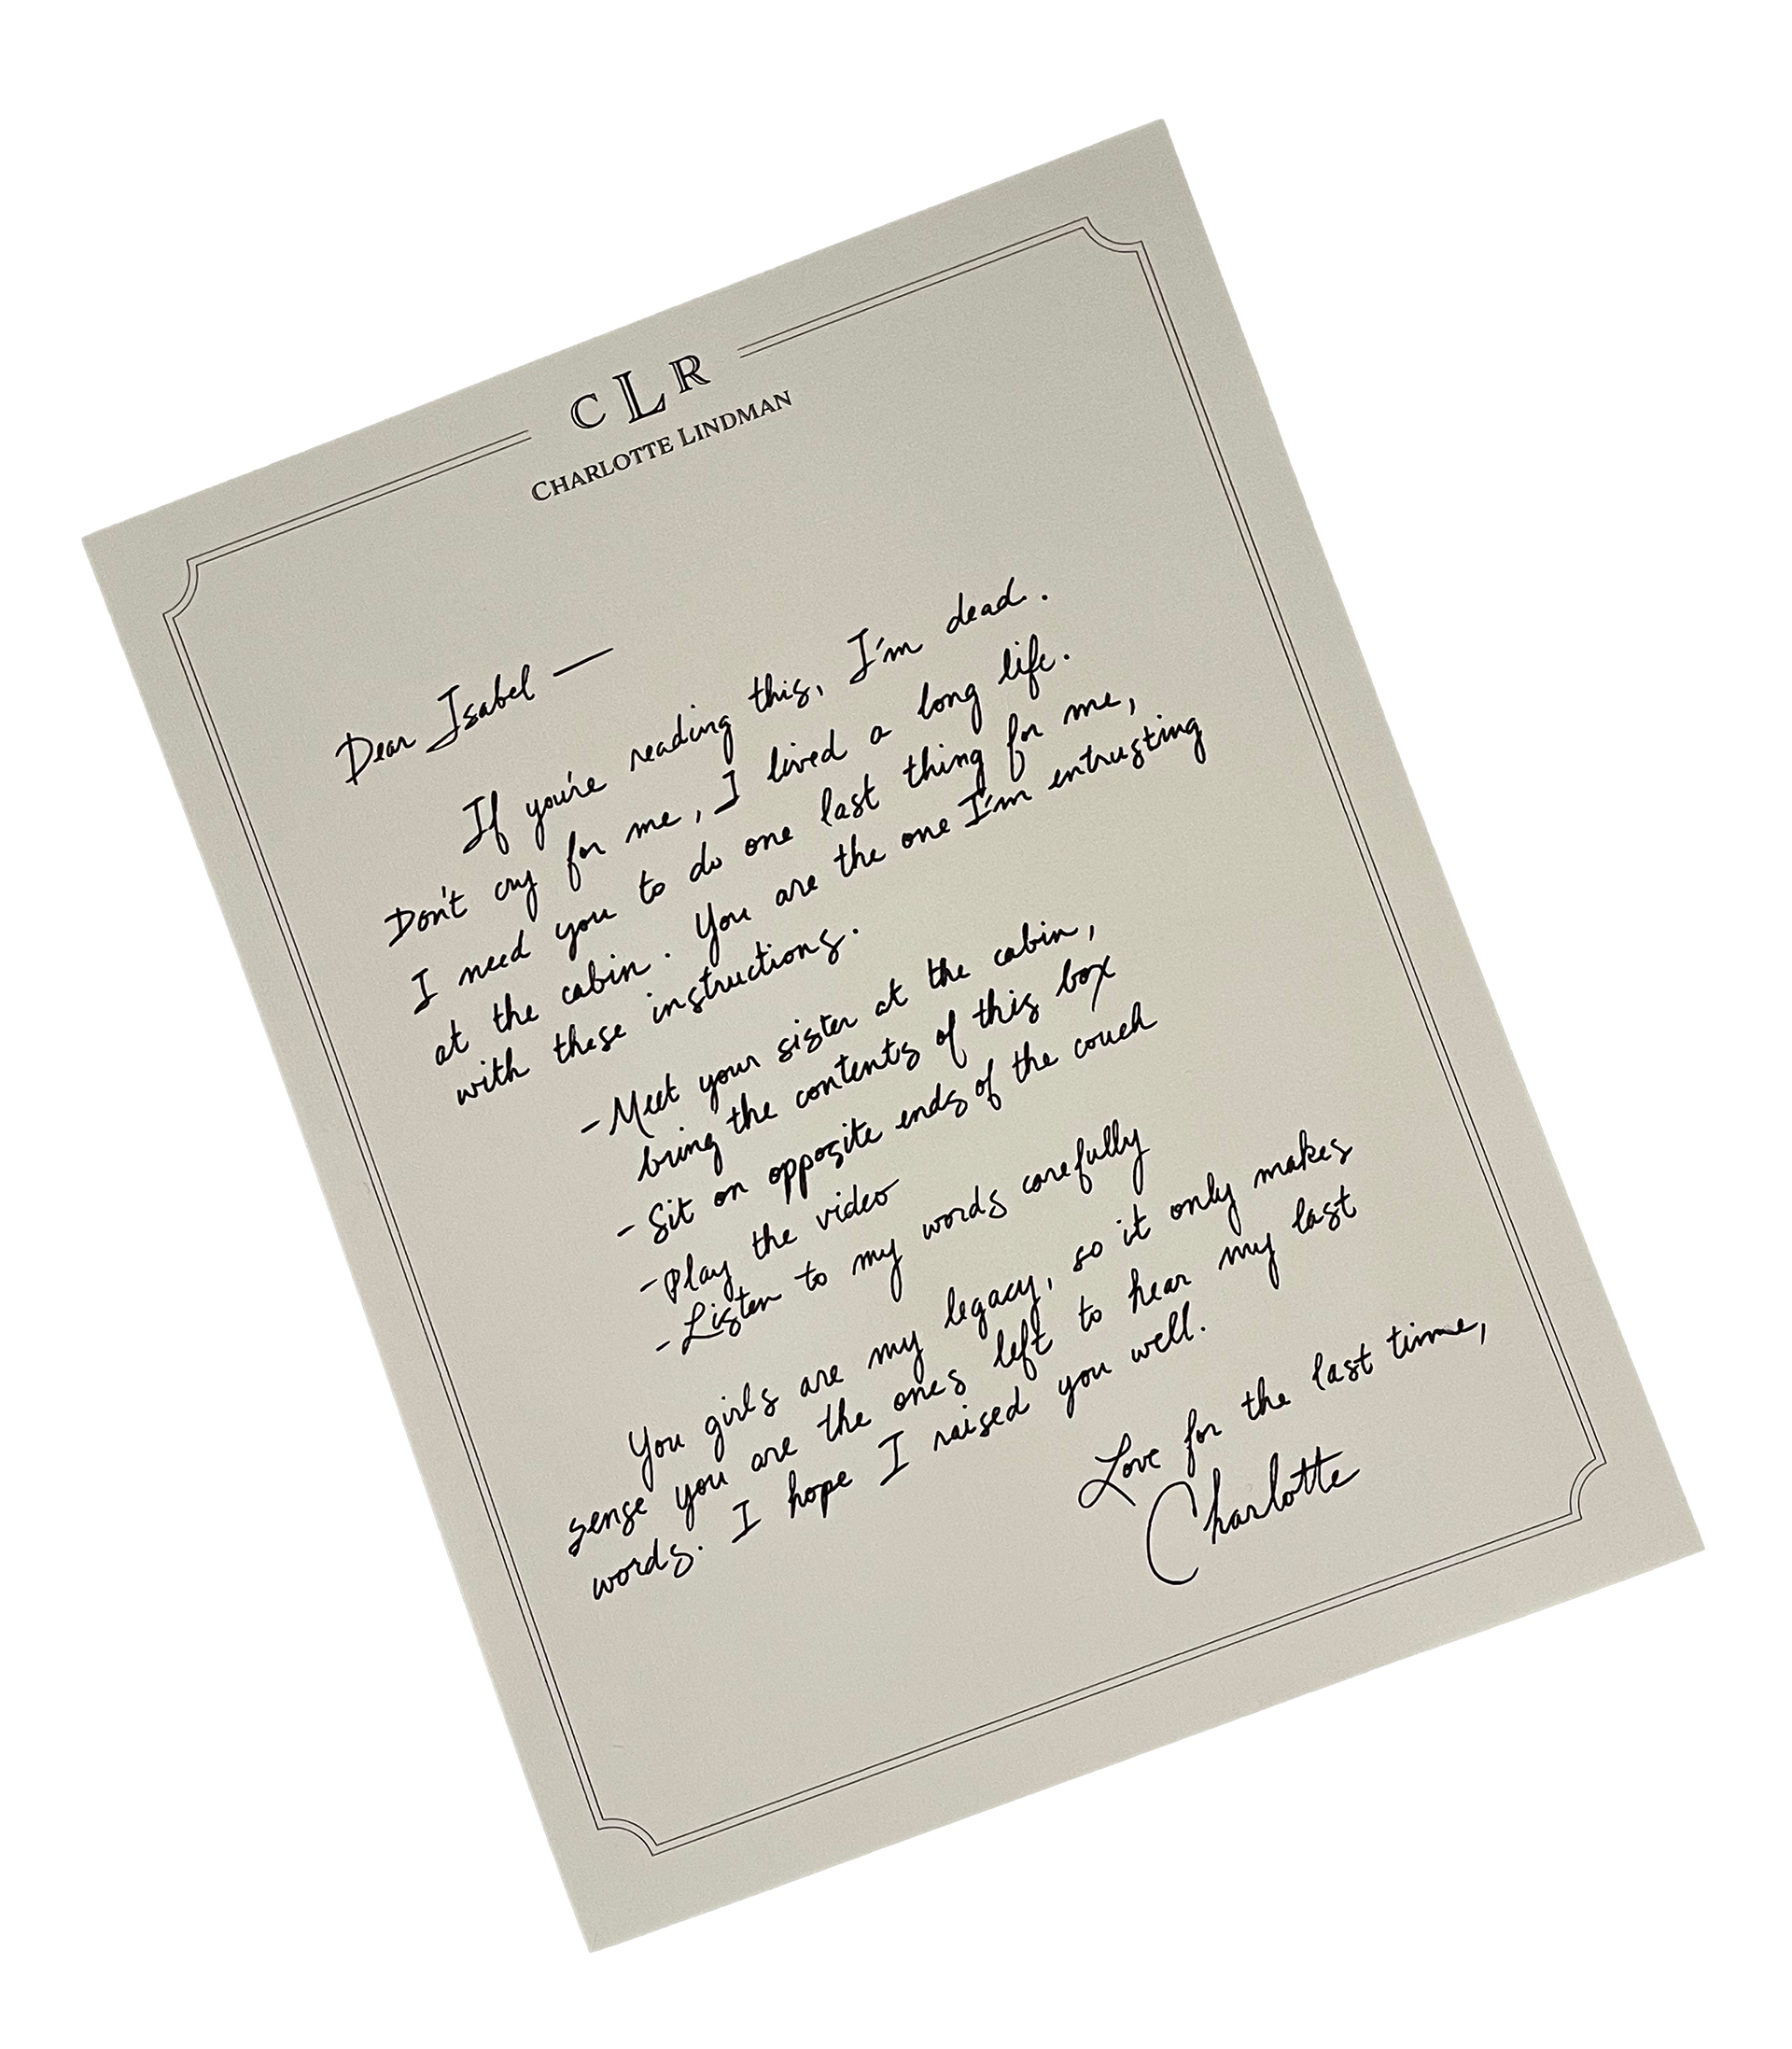 C L R
CHARLOTTE LINDMAN
Dear Isabel —
If you're reading this, I'm dead.
Don't cry for me, I lived a long life.
I need you to do one last thing for me,
at the cabin. You are the one I'm entrusting
with these instructions.
- Meet your sister at the cabin,
bring the contents of this box
- Sit on opposite ends of the couch
- Play the video
- Listen to my words carefully
You girls are my legacy, so it only makes
sense you are the ones left to hear my last
words. I hope I raised you well.
Love for the last time,
Charlotte